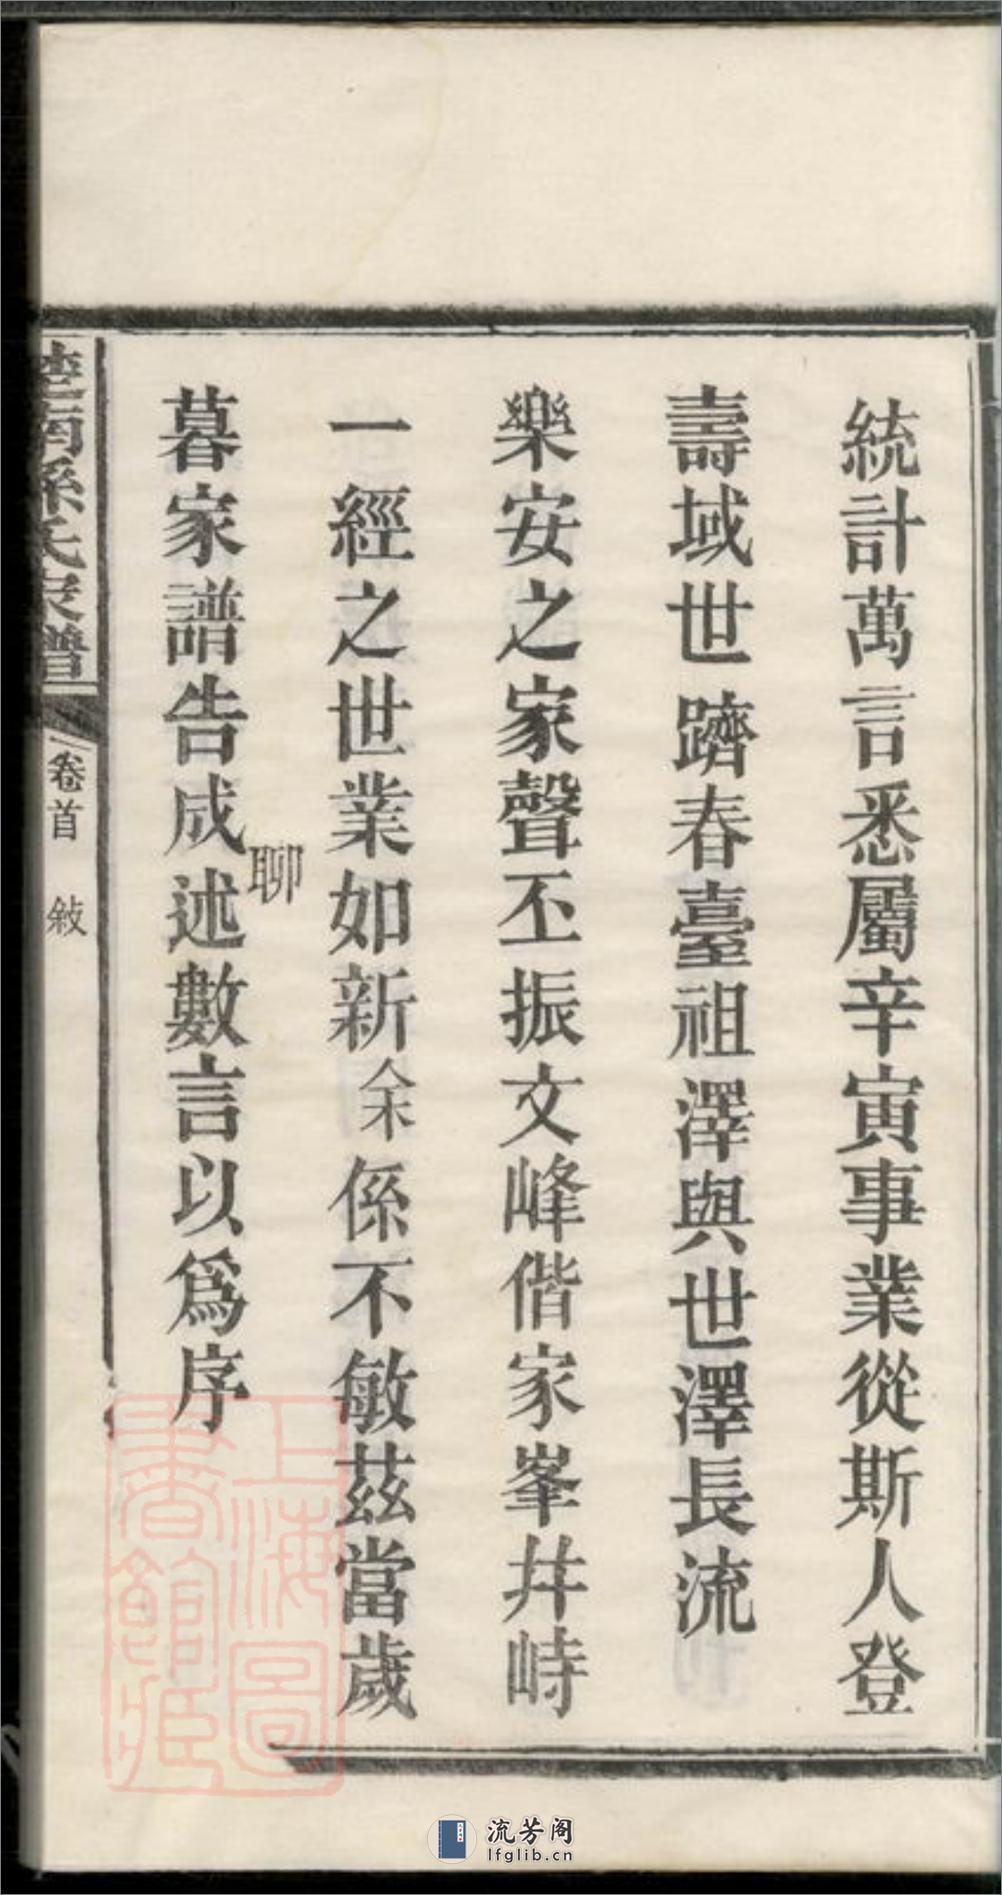 統計萬言悉屬辛寅事業從斯人登
壽域世躋春臺祖澤與世澤長流
樂安之家聲丕振文峰偕家峯幷峙
一經之世業如新余係不敏茲當歲
聊
暮家譜告成述數言以爲序
南孫氏宗譜
卷首 敍
上海圖書館藏
流芳阁
lfglib.cn